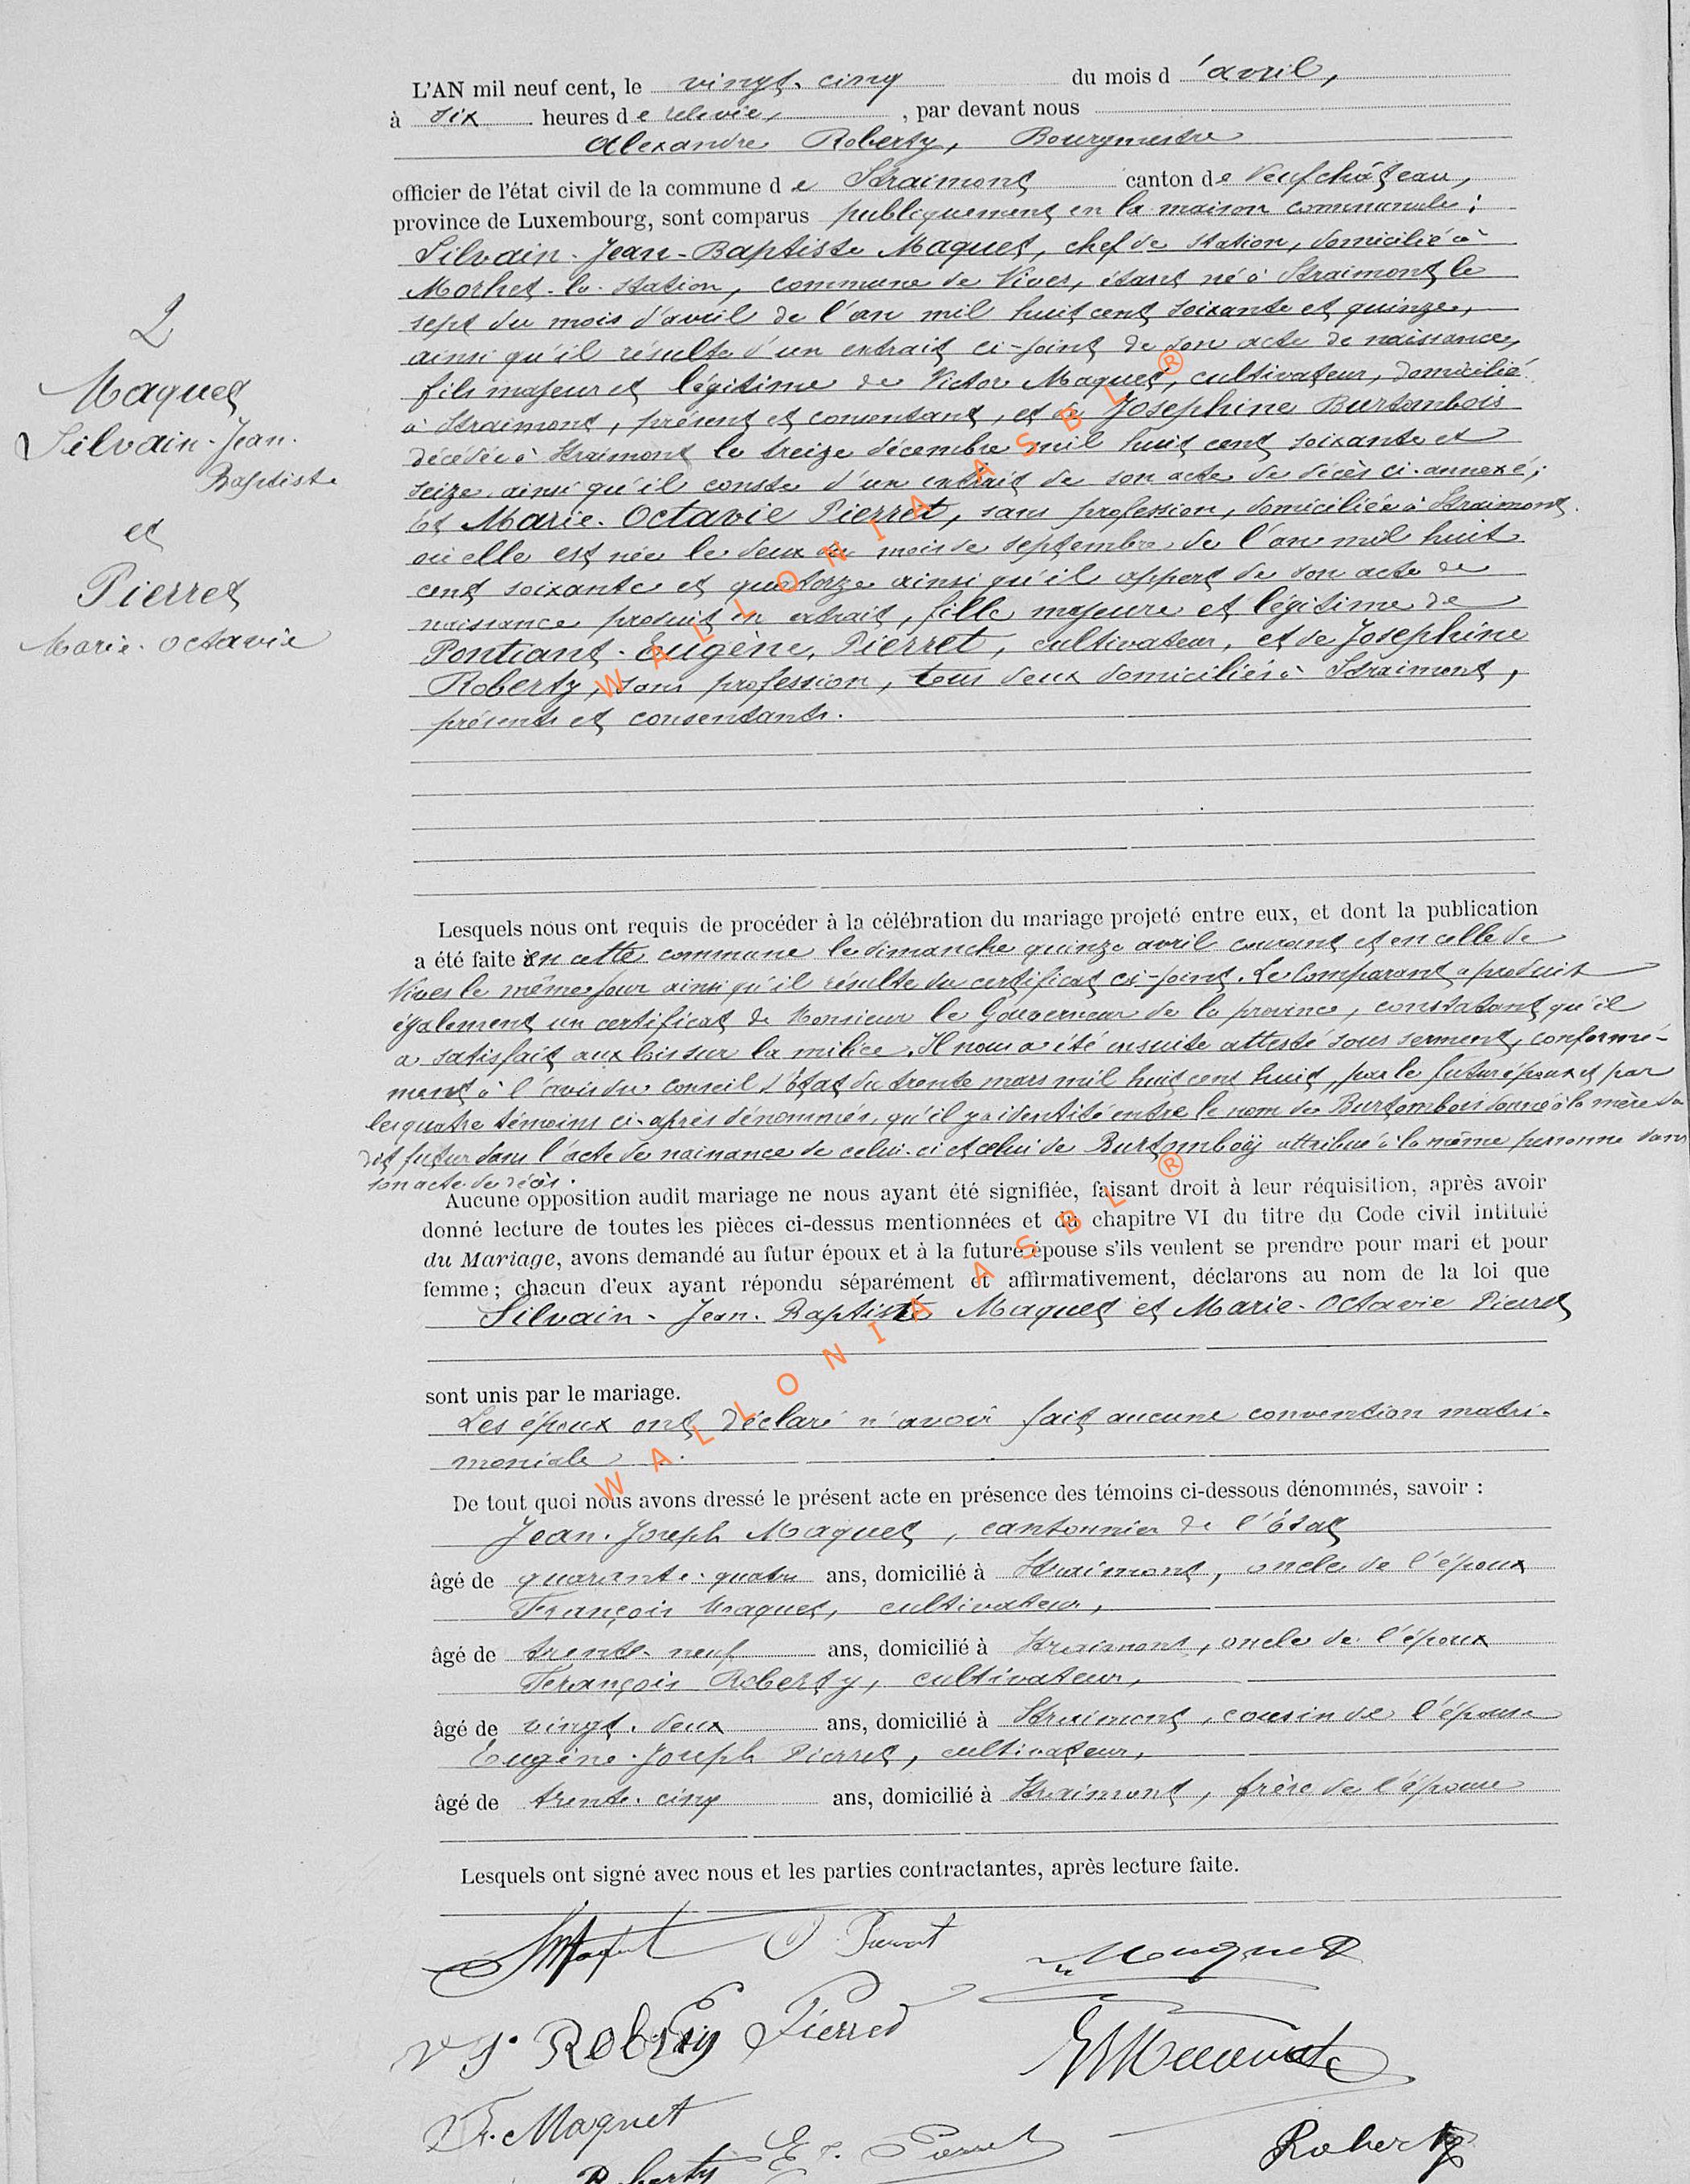 L'AN mil neuf cent, le vingt-cinq du mois d'avril,
à six heures de relevée, par devant nous
Alexandre Roberty, Bourgmestre
officier de l'état civil de la commune de Straimont canton de Neufchâteau,
province de Luxembourg, sont comparus publiquement en la maison communale :
Silvain-Jean-Baptiste Maquet, chef de station, domicilié à
Morhet-la-station, commune de Vives, étant né à Straimont le
sept du mois d'avril de l'an mil huit cent soixante et quinze,
ainsi qu'il résulte d'un extrait ci-joint de son acte de naissance,
fils majeur et légitime de Victor Maquet, cultivateur, domicilié
à Straimont, présent et consentant, et de Josephine Burtonbois
décédée à Straimont le treize décembre mil huit cent soixante et
seize, ainsi qu'il conste d'un extrait de son acte de décès ci-annexé ;
Et Marie-Octavie Pierret, sans profession, domiciliée à Straimont
où elle est née le deux du mois de septembre de l'an mil huit
cent soixante et quatorze ainsi qu'il appert de son acte de
naissance produit en extrait, fille majeure et légitime de
Pontiant-Eugène Pierret, cultivateur, et de Josephine
Roberty, sans profession, tous deux domiciliés à Straimont,
présents et consentants.
2
Maquet
Silvain-Jean-
Baptiste
et
Pierret
Marie-Octavie
Lesquels nous ont requis de procéder à la célébration du mariage projeté entre eux, et dont la publication
a été faite en cette commune le dimanche quinze avril courant et en celle de
Vives le même jour ainsi qu'il résulte du certificat ci-joint. Le Comparant a produit
également un certificat de Monsieur le Gouverneur de la province, constatant qu'il
a satisfait aux lois sur la milice. Il nous a été ensuite attesté sous serment, conformé-
ment à l'avis du Conseil d'Etat du trente mars mil huit cent huit, par le futur époux et par
les quatre témoins ci-après dénommés, qu'il y a identité entre le nom de Burtombois donné à la mère du
dit futur dans l'acte de naissance de celui-ci et celui de Burtomboÿ attribué à la même personne dans
son acte de décès.
Aucune opposition audit mariage ne nous ayant été signifiée, faisant droit à leur réquisition, après avoir
donné lecture de toutes les pièces ci-dessus mentionnées et du chapitre VI du titre du Code civil intitulé
du Mariage, avons demandé au futur époux et à la future épouse s'ils veulent se prendre pour mari et pour
femme ; chacun d'eux ayant répondu séparément et affirmativement, déclarons au nom de la loi que
Silvain-Jean-Baptiste Maquet et Marie-Octavie Pierret
sont unis par le mariage.
Les époux ont déclaré n'avoir fait aucune convention matri-
moniale.
De tout quoi nous avons dressé le présent acte en présence des témoins ci-dessous dénommés, savoir :
Jean-Joseph Maquet, cantonnier de l'Etat
âgé de quarante-quatre ans, domicilié à Straimont, oncle de l'époux
François Maquet, cultivateur,
âgé de trente-neuf ans, domicilié à Straimont, oncle de l'époux
François Roberty, cultivateur,
âgé de vingt-deux ans, domicilié à Straimont, cousin de l'épouse
Eugène-Joseph Pierret, cultivateur,
âgé de trente-cinq ans, domicilié à Straimont, frère de l'épouse
Lesquels ont signé avec nous et les parties contractantes, après lecture faite.
Maquet O Pierret Maquet
Roberty Pierret
F. Maquet
Roberty E. Pierret Roberty
WALLONIA ASBL ®
WALLONIA ASBL ®